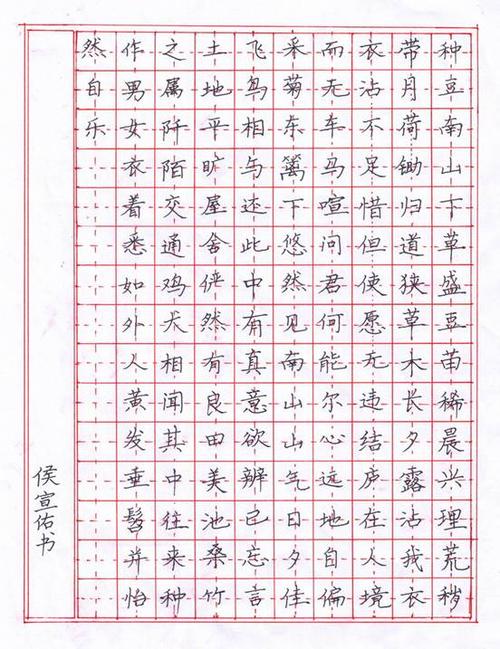 种豆南山下草盛豆苗稀晨兴理荒秽
带月荷锄归道狭草木长夕露沾我衣
衣沾不足惜但使愿无违结庐在人境
而无车马喧问君何能尔心远地自偏
采菊东篱下悠然见南山山气日夕佳
飞鸟相与还此中有真意欲辨已忘言
土地平旷屋舍俨然有良田美池桑竹
之属阡陌交通鸡犬相闻其中往来种
作男女衣着悉如外人黄发垂髫并怡
然自乐
侯宣佑书